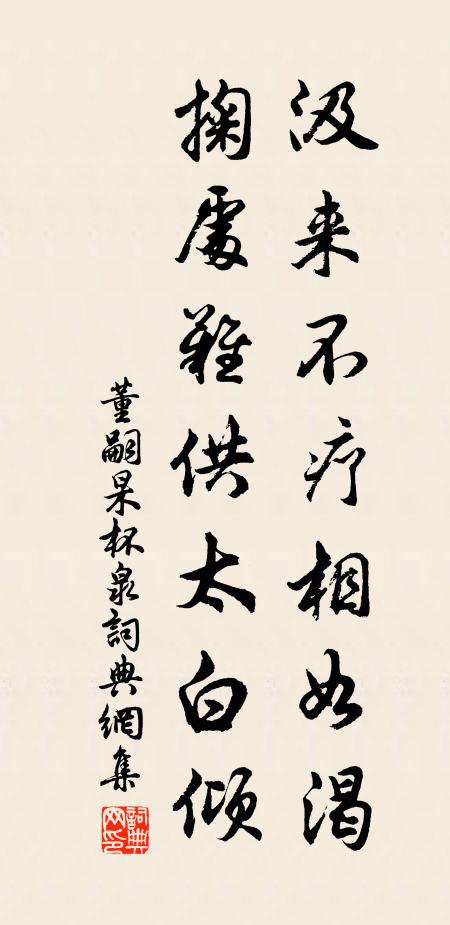 汲来不疗相如渴
掬處難供太白倾
董嗣杲杯泉詞典網集
詞典网印